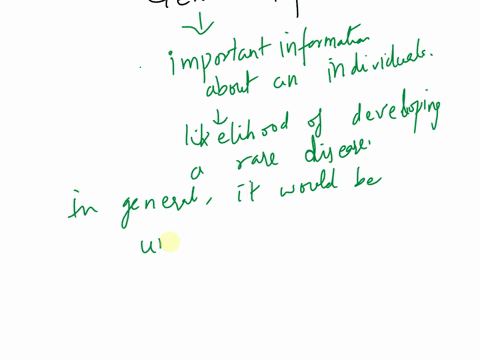 important information
about an individuals.
likelihood of developing
a rare disease.
In general, it would be